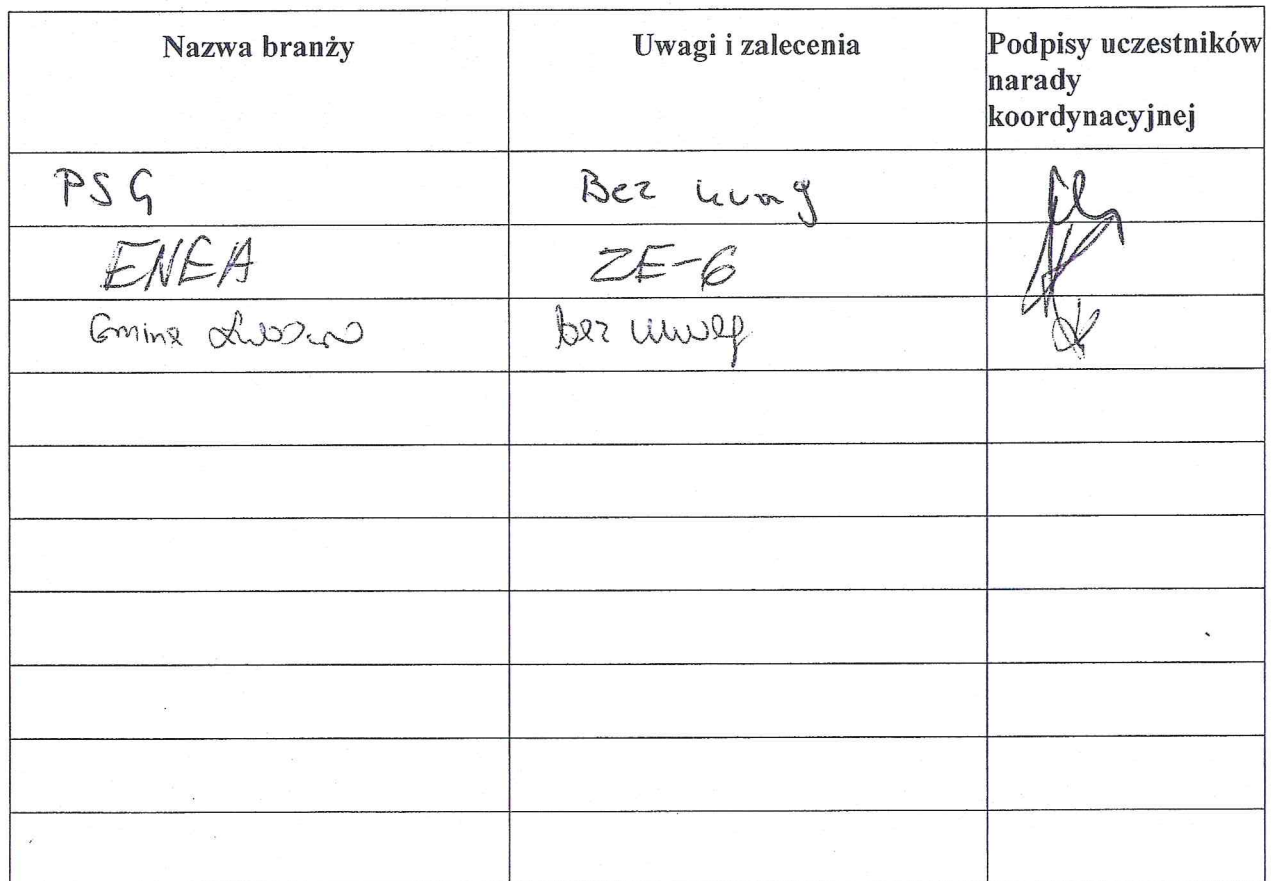 Nazwa branży Uwagi i zalecenia Podpisy uczestników
narady
koordynacyjnej
PSG Bez uwag
ENEA ZE-6
Gmina bez uwag